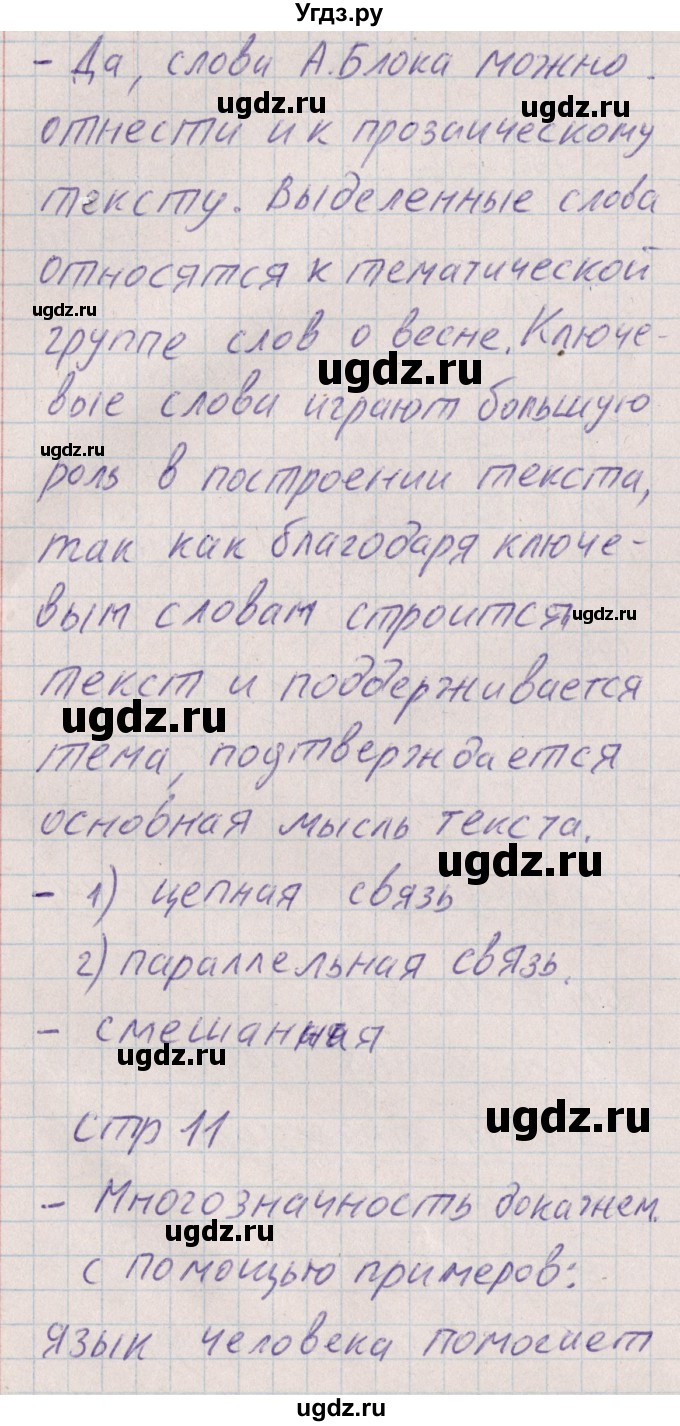 Угдз.ру
- Да, слова А.Блока можно
отнести и к прозаическому
тексту. Выделенные слова
относятся к тематической
группе слов о весне. Ключе-
вые слова играют большую
роль в построении текста,
так как благодаря ключе-
вым словам строится
текст и поддерживается
тема, подтверждается
основная мысль текста.
- 1) цепная связь
2) параллельная связь.
- смешанная
стр 11
- Многозначность докажем
с помощью примеров:
язык человека помогает
ugdz.ru
ugdz.ru
ugdz.ru
ugdz.ru
ugdz.ru
ugdz.ru
ugdz.ru
ugdz.ru
ugdz.ru
ugdz.ru
ugdz.ru
ugdz.ru
ugdz.ru